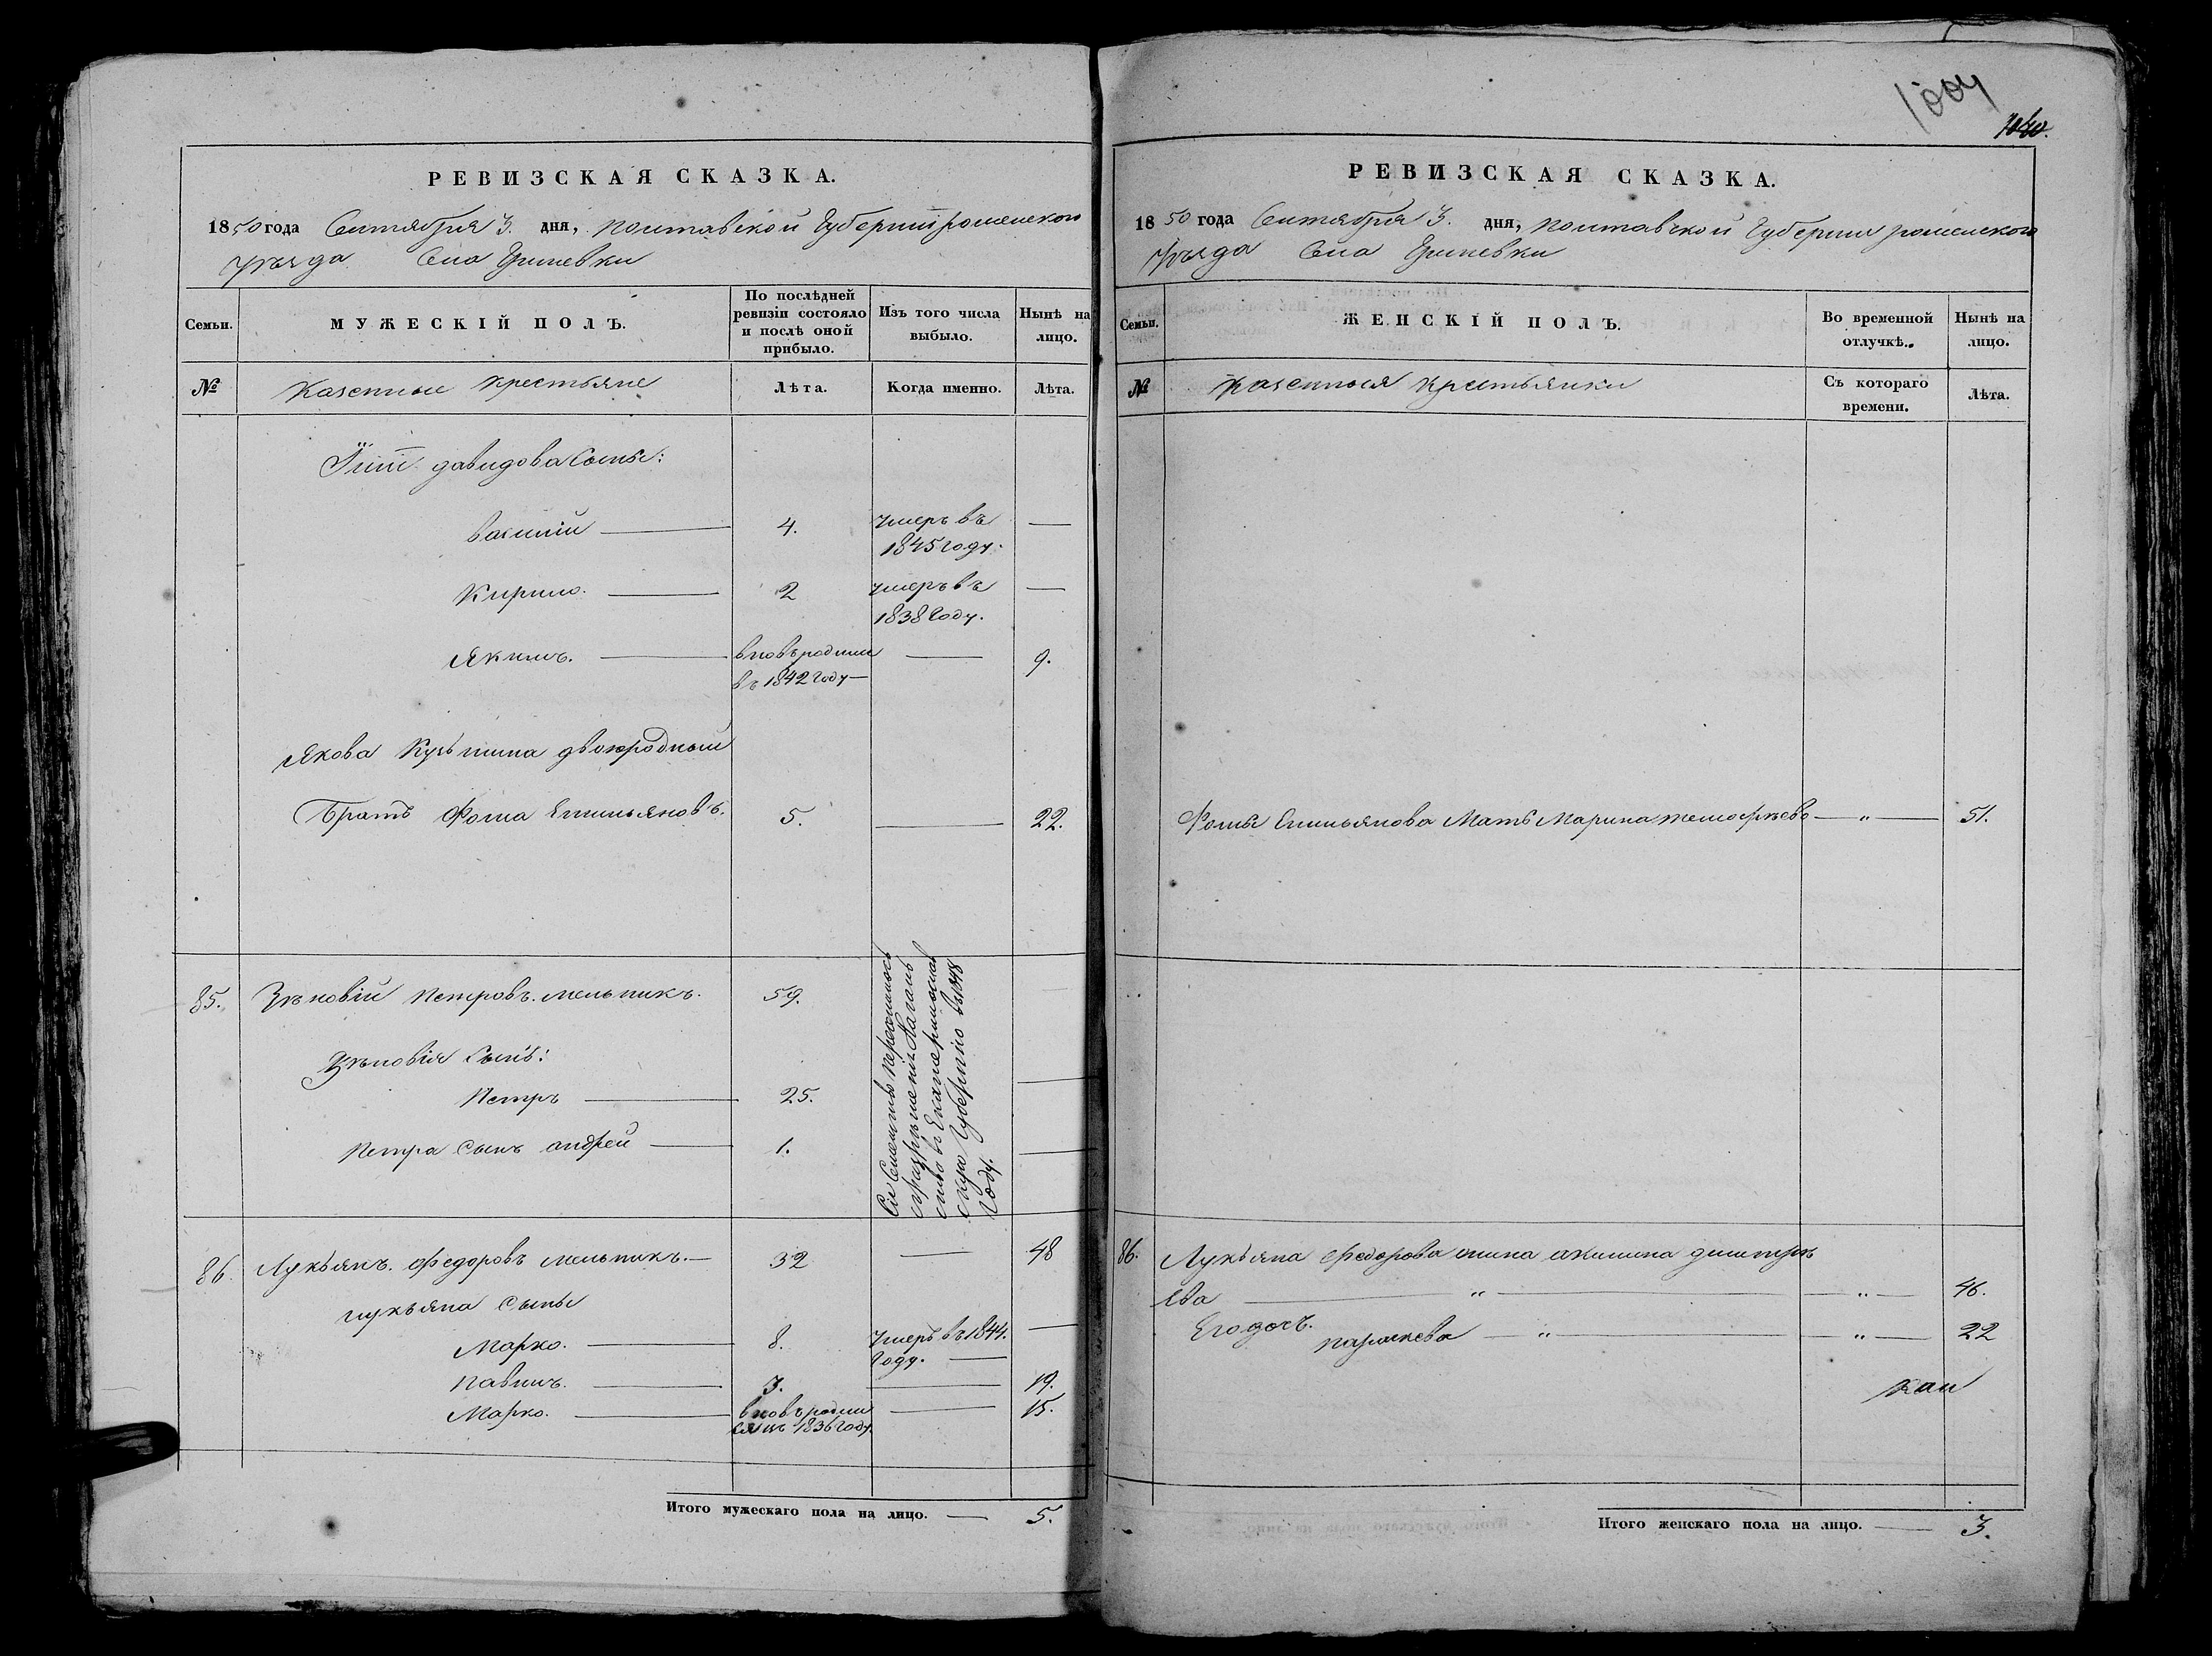 РЕВИЗСКАЯ СКАЗКА.
1850 года Сентября 3. дня, полтавской Губернии роменского
уѣзда Села Гриневки
Семьи.
МУЖЕСКІЙ ПОЛЪ.
По послѣдней ревизіи состояло и послѣ оной прибыло.
Изъ того числа выбыло.
Нынѣ на лицо.
№
Казенные крестьяне
Лѣта.
Когда именно.
Лѣта.
давидова Сыны:
василій — 4. умеръ въ 1845 году. —
Кирило. — 2 умеръ въ 1838 году. —
Якимъ. — вновь родился въ 1842 году — — 9.
Якова Кузьмина двоюродный
Братъ Фома Емельяновъ. 5. — 22.
85. Зѣновій Петровъ мельникъ. 59.
Зѣновія Сынъ:
Петръ — 25. —
Петра Сынъ андрей — 1. —
Сіе Семейство переселилось
ство въ Екатеринослав
скую Губернію въ 1848
Году.
86. Лукьянъ федоровъ мельникъ. — 32 — 48
лукьяна Сыны
Марко. — 8. Умеръ въ 1844. Году. — —
Павлъ. — 3. — 19.
Марко. — вновь родился въ 1836 году. — 15.
Итого мужескаго пола на лицо. — 5.
1004
1040.
РЕВИЗСКАЯ СКАЗКА.
1850 года Сентября 3. дня, полтавской Губернии роменского
уѣзда Села Гриневки
Семьи.
ЖЕНСКІЙ ПОЛЪ.
Во временной отлучкѣ.
Нынѣ на лицо.
№
казенныя крестьянки
Съ котораго времени.
Лѣта.
Фомы Емельянова Мать Марина — " — 51.
86. Лукьяна федорова жина акилина дмитрі
ева — " — — " — 46.
Его дочь.
параскева — " — " — 22
Итого женскаго пола на лицо. — 3.